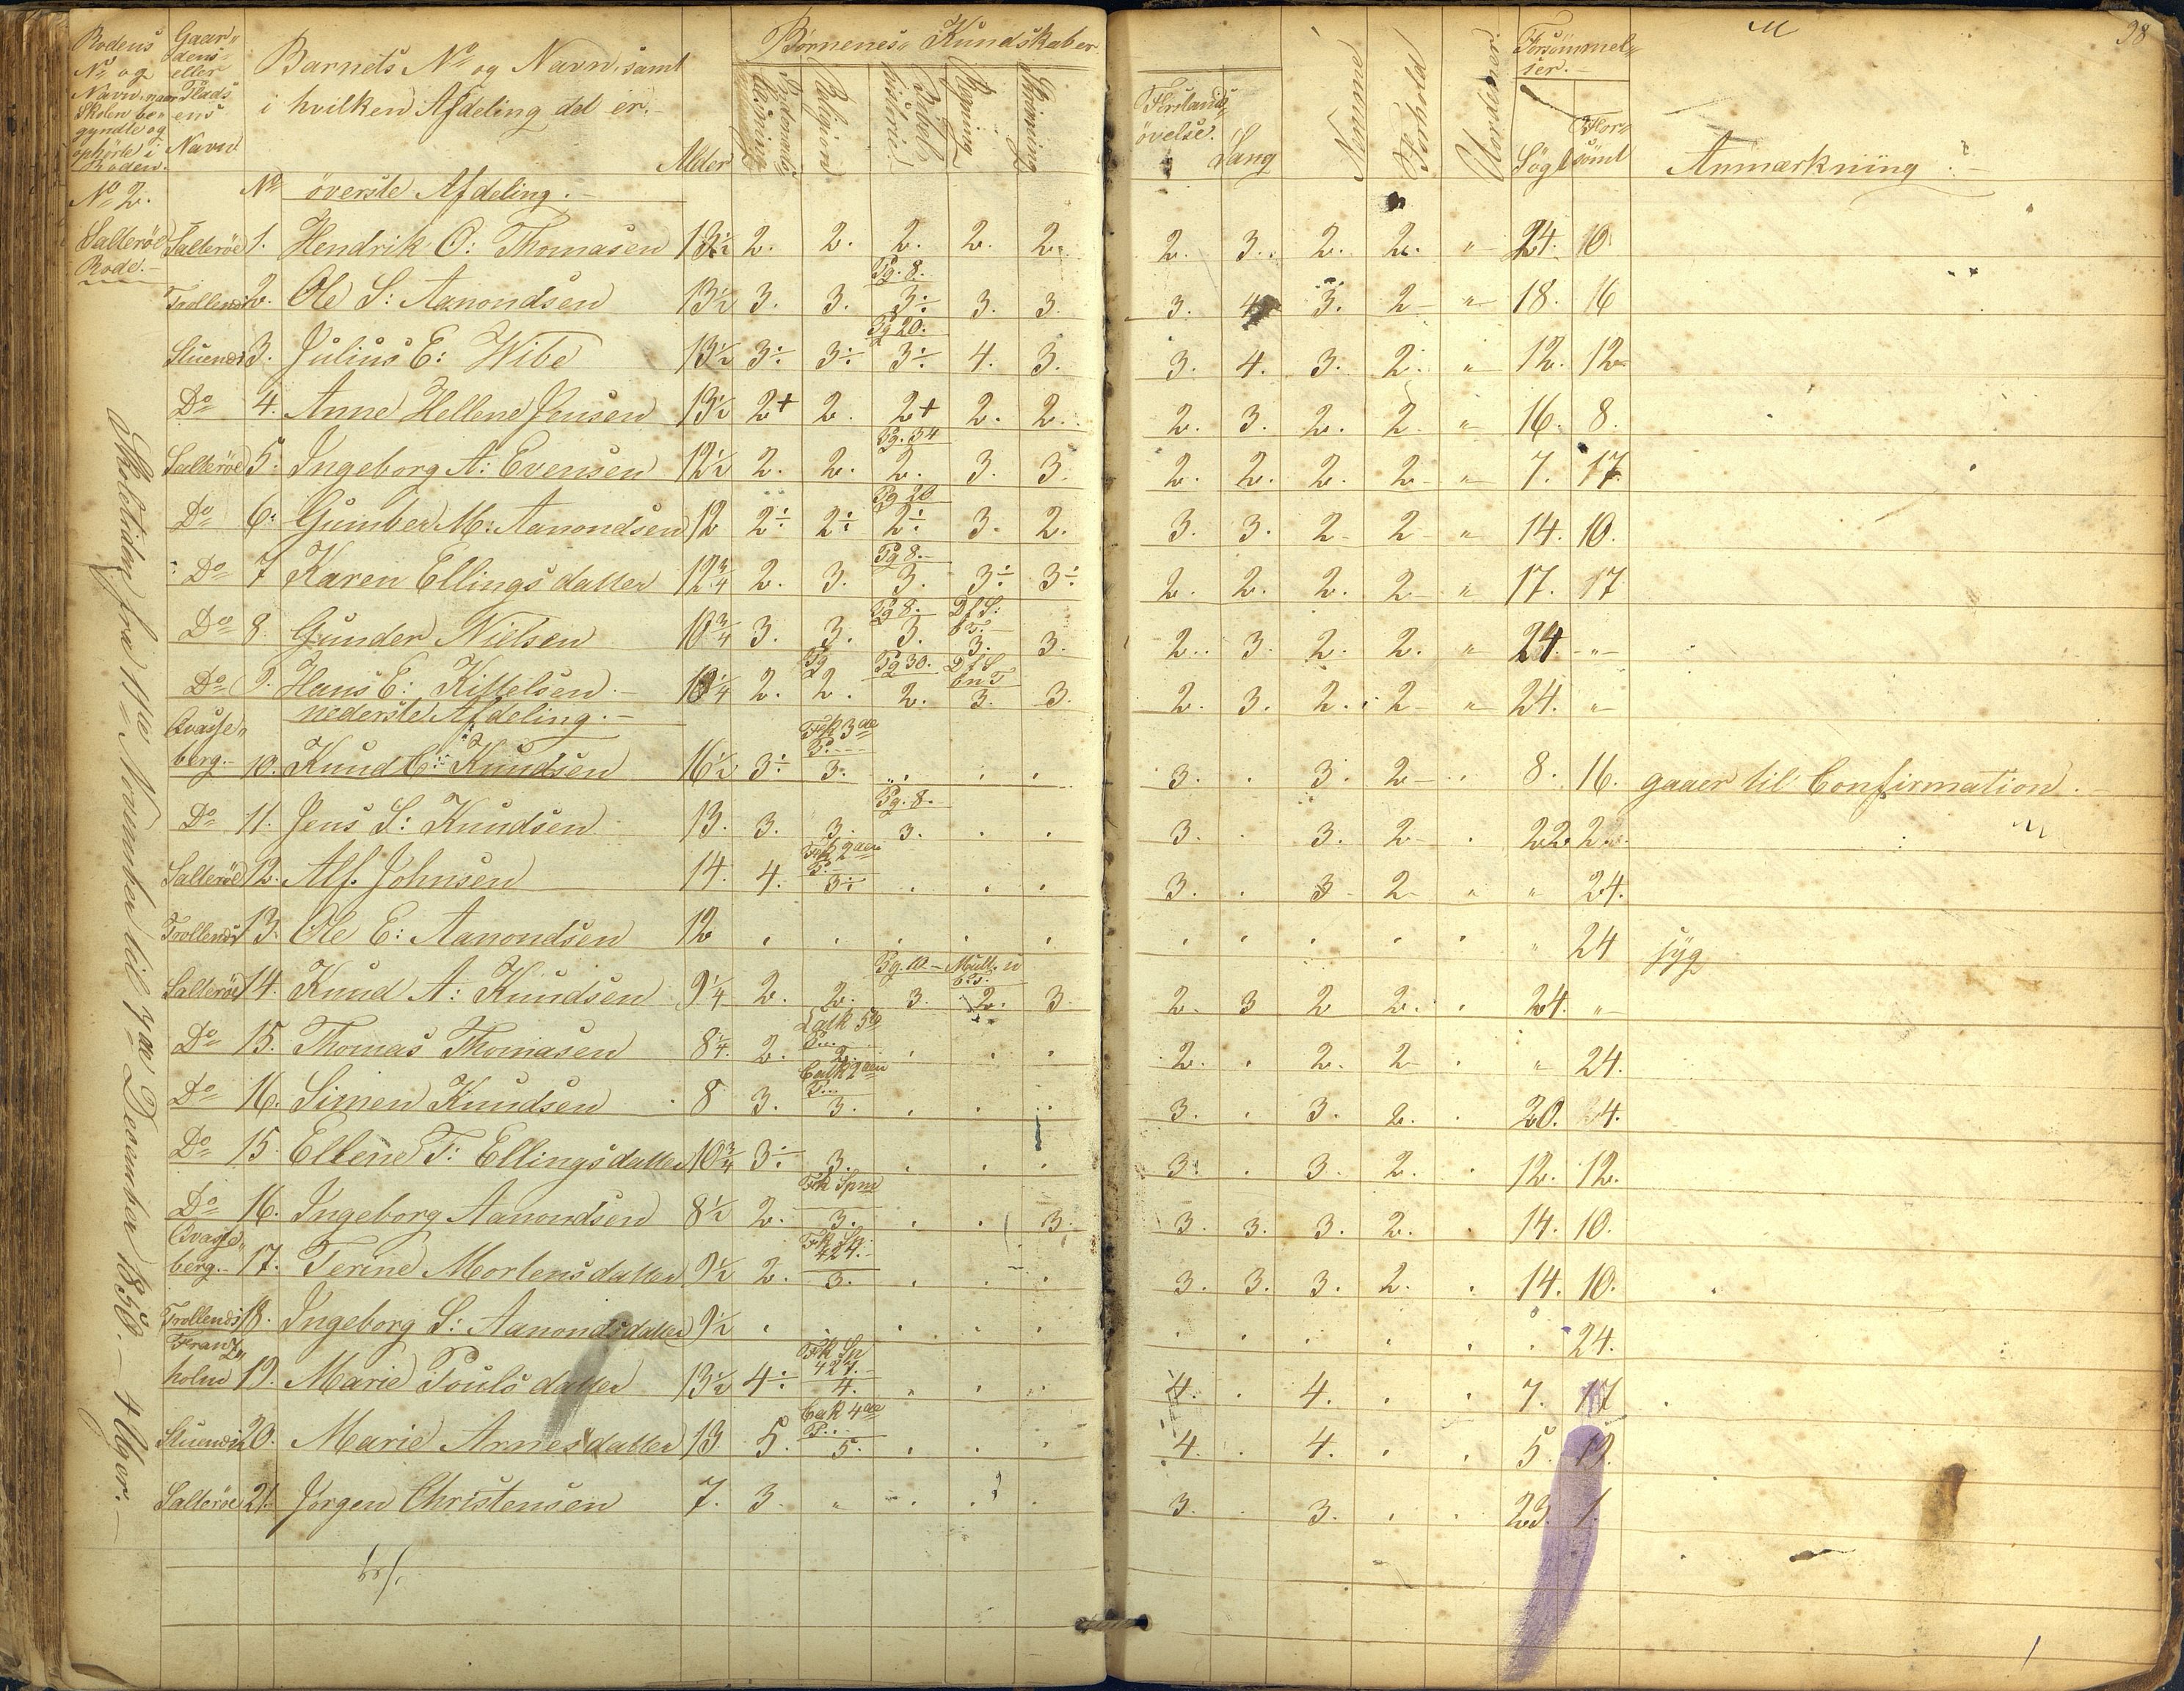 98
Rodens No og Navn, naar Skolen begyndte og ophörte i Roden.
Gaardens eller Pladsens Navn
Barnets No og Navn, samt i hvilken Afdeling det er.
Alder
Börnenes Kundskaber
Religion
Bibelhistorie
Regning
Skrivning
Forstandsövelse.
Sang
Nemme
Forhold
Uordener
Forsömmelser.
Sögt
Forsömt
Anmærkning
No 2.
No överste Afdeling.
Salteröe Rode.
Salteröe 1. Hendrik O: Thomasen 13½ 2. 2. 2. 2. 2. 2. 3. 2. 2. " 24. 10.
Trollends 2. Ole S: Aanondsen 13½ 3. 3. Pg. 8. 3÷ 3. 3. 3. 4 3. 2 " 18. 16
Stuends 3. Julius E: Wibe 13½ 3÷ 3÷ Pg 20. 3÷ 4. 3. 3. 4. 3. 2. " 12. 12
Do 4. Anne Hellene Jensen 13½ 2+ 2. 2+ 2. 2. 2. 3. 2. 2. " 16. 8.
Salteröe 5. Ingeborg A: Evensen 12½ 2. 2. Pg. 54 2. 3. 3. 2. 2. 2. 2 " 7. 17
Do 6. Gumber M: Aanondsen 12 2÷ 2÷ Pg 20 2÷ 3. 2. 3. 3. 2 2 " 14. 10.
Do 7 Karen Ellingsdatter 12¾ 2. 3. Pg 8. 3. 3÷ 3÷ 2. 2. 2. 2 " 17. 17
Do 8. Gunder Nielsen 10¾ 3. 3. Pg 8. 3. 3. 3. 2. 3. 2. 2. " 24. "
Do 9. Hans E: Kittelsen 10¼ 2. 2. Pg 30. 2. 3. 3. 2. 3. 2. 2 " 24. "
nederste Afdeling.
Qvasseberg. 10. Knud C: Knudsen 16½ 3÷ Fk 3de P. 3. 3. 3. 2 8. 16. gaaer til Confirmation.
Do 11. Jens S: Knudsen 13. 3. 3. Pg. 8. 3. 3. 3. 2 22 2.
Salteröe 12. Alf Johnsen 14. 4. Fk 2den P. 3÷ 3. 3 2 " " 24.
Trollends 13. Ole E: Aanondsen 12 " 24 syg
Salteröe 14. Knud A: Knudsen 9¼ 2. 2. 3. 2. 3. 2. 3 2 2. 24. "
Do 15. Thomas Thomasen 8¼ 2. 2. 2. 2. 2 " 24.
Do 16. Simen Knudsen 8 3. Catk 2den P. 3. 3. 3. 2. 20. 4.
Do 15. Ellene T: Ellingsdatter 10¾ 3÷ 3. 3. 3. 2. 12. 12.
Do 16. Ingeborg Aanondsen 8½ 2. Fk Spm 3. 3. 3. 3. 3. 2. 14. 10.
Qvasseberg. 17. Terine Mortensdatter 9½ 2. Fk Sp. 424. 3. 3. 3. 3. 2. 14. 10.
Trollends 18. Ingeborg S: Aanondsdatter 9½ 24.
Franzholm 19. Marie Poulsdatter 13½ 4÷ Fk Sp 427. 4. 4. 4. 7. 17
Stuends 20. Marie Arnesdatter 13. 5. Cak 4de P. 5. 4. 4. 5. 19.
Salteröe 21. Jörgen Christensen 7. 3. " 3. 3. 23. 1.
Skoletiden fra 11te November til 7de December 1858. – 4 Uger. –